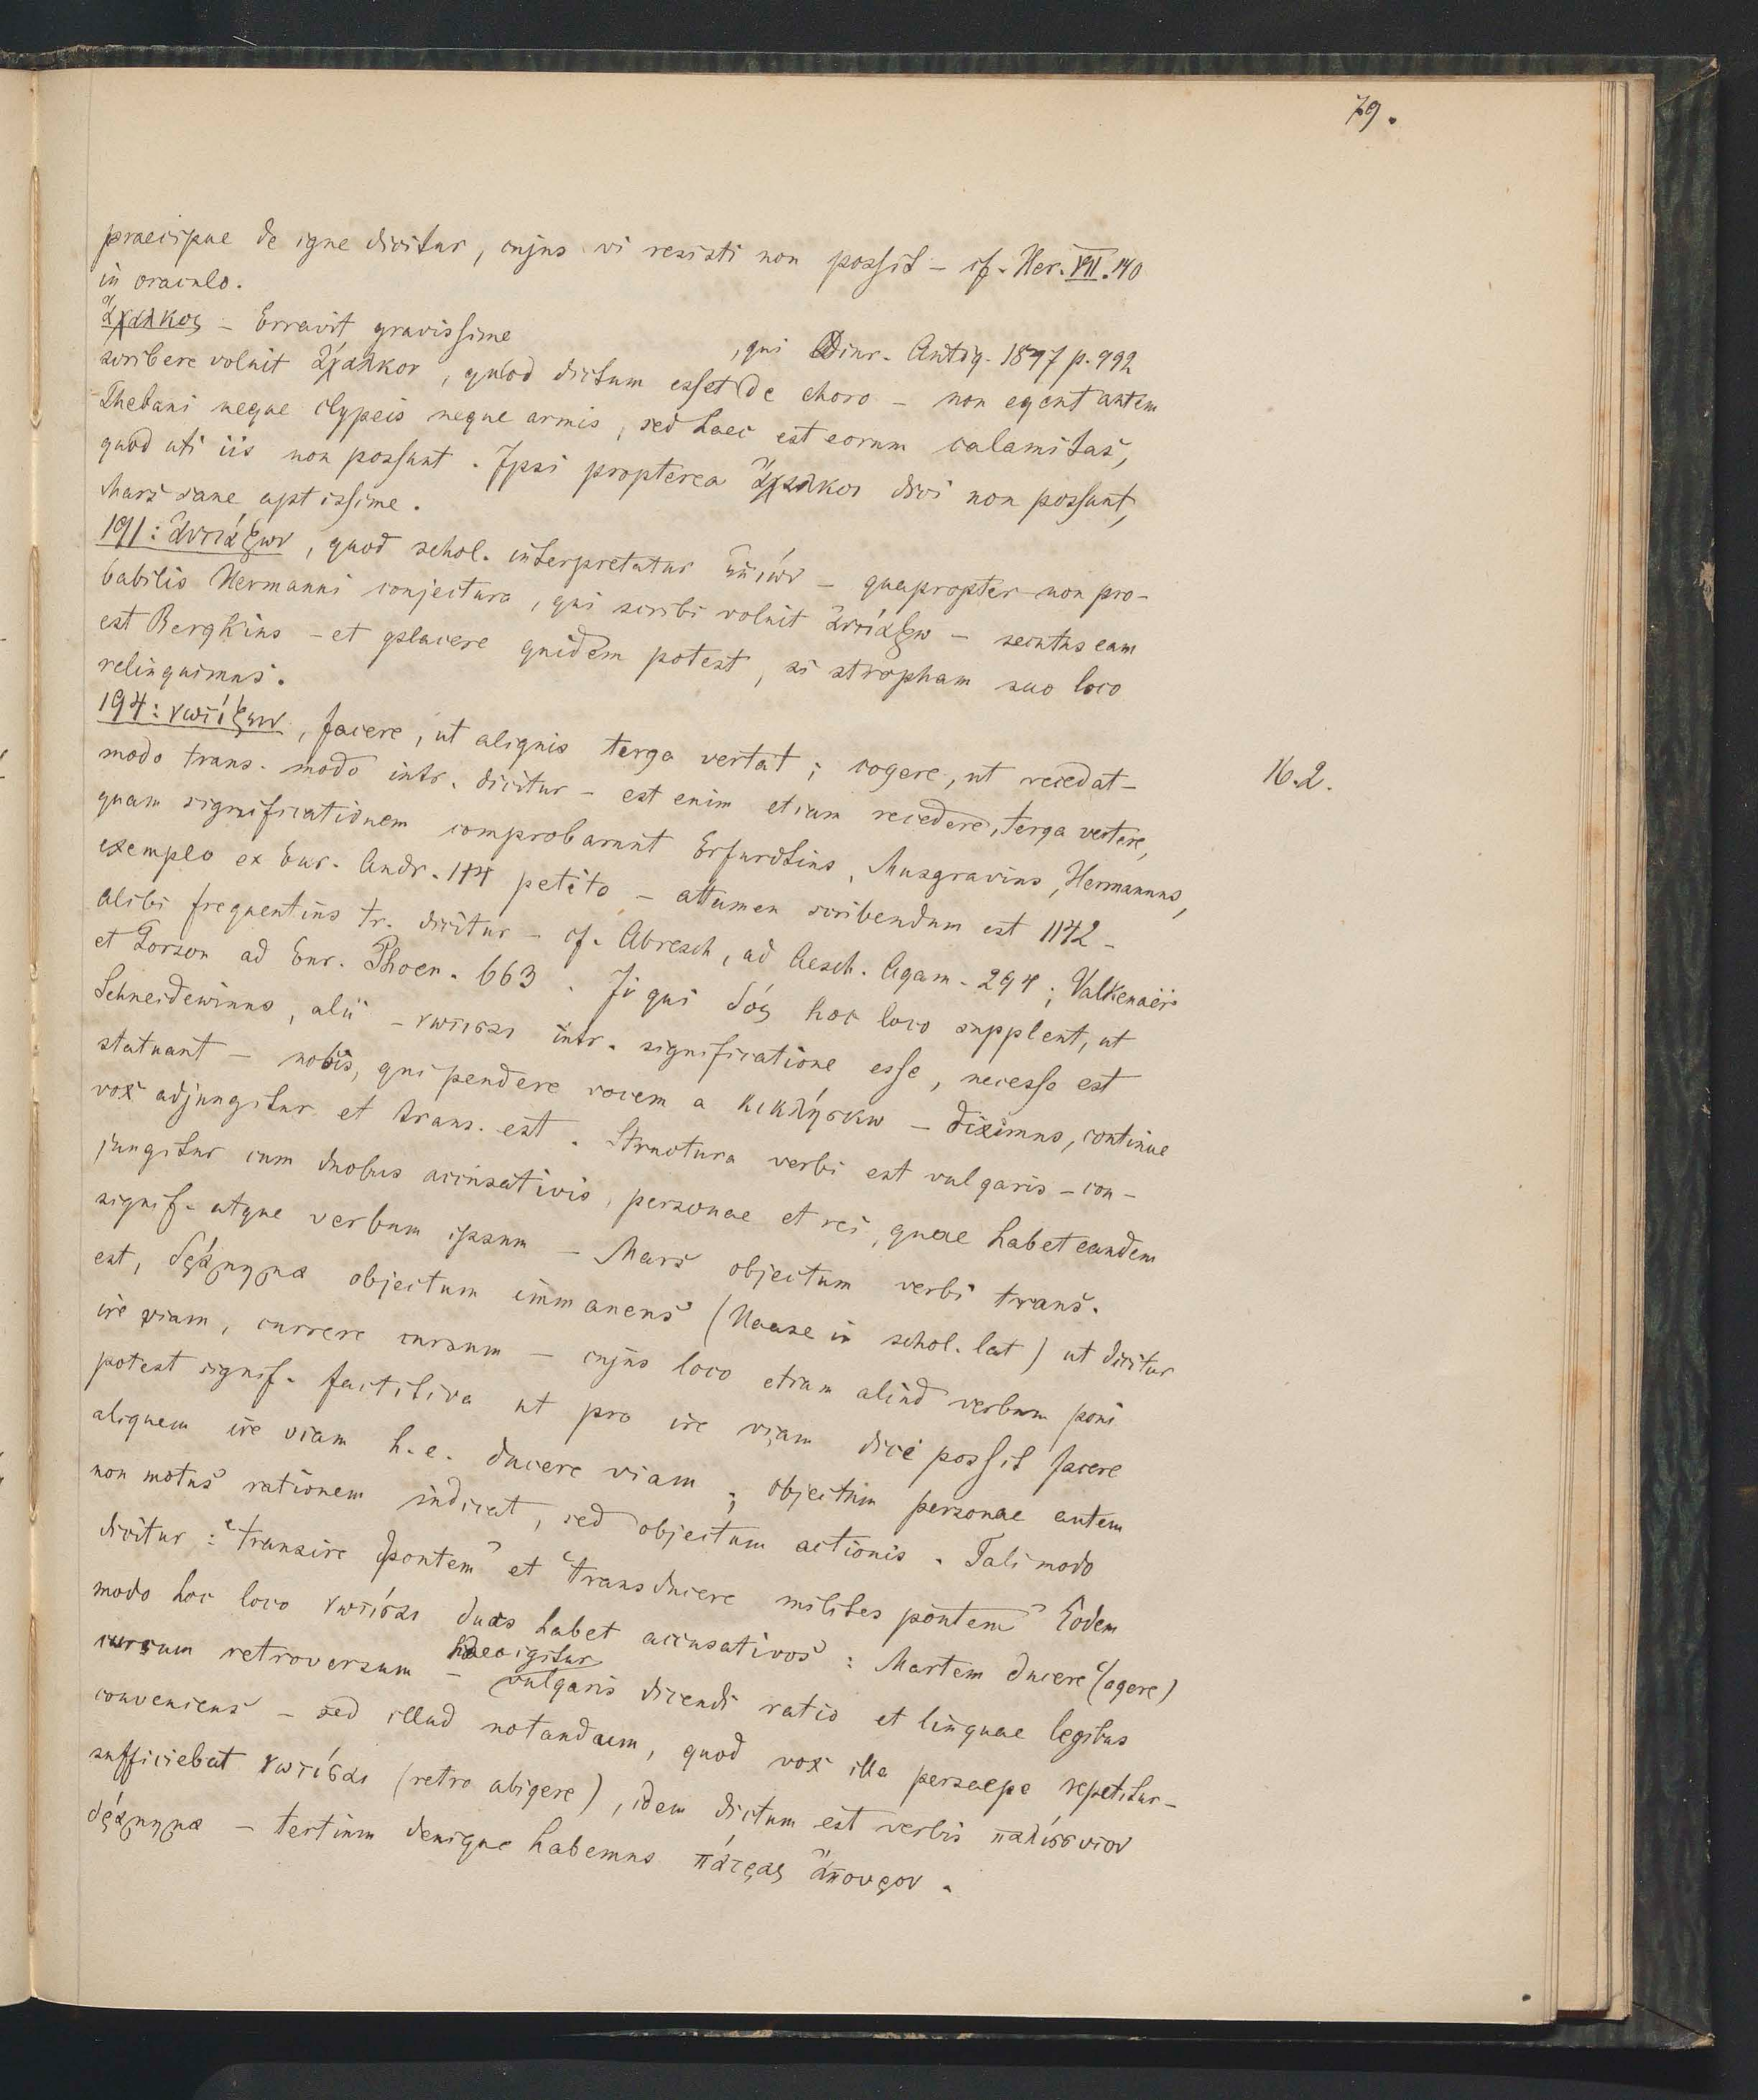 79.
praecipue de igne dicitur, cujus vi resisti non possit – cf. Her. VII. 140
in oraculo.
ἄχαλκος – Erravit gravissime , qui Diur. Antiq. 1847 p. 992
scribere voluit ἄχαλκον, quod dictum esset de choro – non egent autem
Thebani neque clypeis neque armis, sed haec est eorum calamitas,
quod uti iis non possunt. Ipsi propterea ἄχαλκοι dici non possunt,
Mars sane aptissime.
191: ἀντιάζων, quod schol. interpretatur ἐπιών – quapropter non pro-
babilis Hermanni conjectura, qui scribi voluit ἀντιάζω – secutus eam
est Bergkius – et placere quidem potest, si stropham suo loco
relinquimus.
194: νωτίζειν, facere, ut aliquis terga vertat; cogere, ut recedat –
16.2.
modo trans. modo intr. dicitur – est enim etiam recedere, terga vertere,
quam significationem comprobarunt Erfurdtius, Musgravius, Hermannus,
exemplo ex Eur. Andr. 1141 petito – attamen scribendum est 1142 –
alibi frequentius tr. dicitur – cf. Abresch, ad Aesch. Agam. 294; Valkenaër
et Porson ad Eur. Phoen. 663. Ii qui δός hoc loco supplent, ut
Schneidewinus, alii – νωτίσαι intr. significatione esse, necesse est
statuant – nobis, qui pendere vocem a κικλήσκω – diximus, continue
vox adjungitur et trans. est. Structura verbi est vulgaris – con-
jungitur cum duobus accusativis, personae et rei, quae habet eandem
signif. atque verbum ipsum – Mars objectum verbi trans.
est, δράμημα objectum immanens (Haase in schol. lat) ut dicitur
ire viam, currere cursum – cujus loco etiam aliud verbum poni
potest signif. factitiva ut pro ire viam dici possit facere
aliquem ire viam h. e. ducere viam; objectum personae autem
non motus rationem indicat, sed objectum actionis. Tali modo
dicitur: "transire pontem" et "transducere milites pontem" Eodem
modo hoc loco νωτίσαι duos habet accusativos: Martem ducere (agere)
cursum retroversum – haec igitur vulgaris dicendi ratio et linguae legibus
conveniens – sed illud notandum, quod vox illa persaepe repetitur –
sufficiebat νωτίσαι (retro abigere), idem dictum est verbis παλίσσυτον
δράμημα – tertium denique habemus πάτρας ἄπουρον.